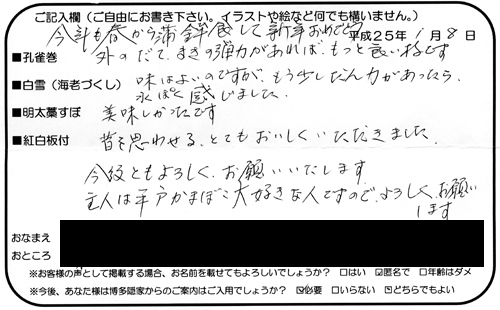 ご記入欄（ご自由にお書き下さい。イラストや絵など何でも構いません。）
今年も春から蒲鉾食して新年おめでとう
平成25年 1月 8日
■孔雀巻 外のだて、まきの弾力があれば、もっと良い格です
■白雪（海老づくし） 味はよいのですが、もう少しだん力があったら、
水ぽく感じました。
■明太藁すぼ 美味しかったです
■紅白板付 昔を思わせる、とてもおいしくいただきました。
今後ともよろしく、お願いいたします
主人は平戸かまぼこ大好きな人ですので、よろしく、お願い
します
おなまえ
おところ
※お客様の声として掲載する場合、お名前を載せてもよろしいでしょうか？ □はい ☑匿名で □年齢はダメ
※今後、あなた様は博多隠家からのご案内はご入用でしょうか？ ☑必要 □いらない ☑どちらでもよい